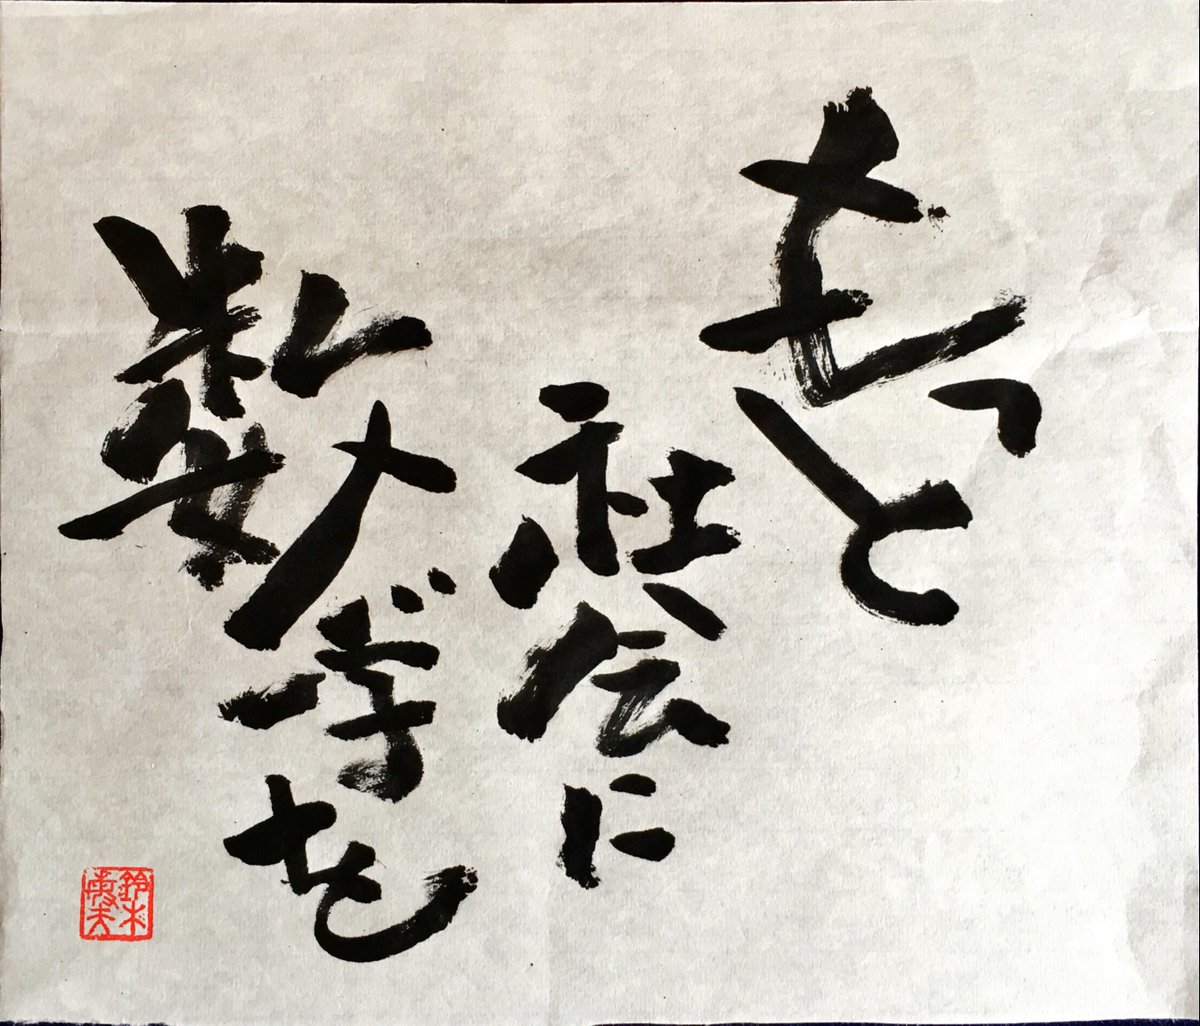 もっと
社会に
数学を
鈴木